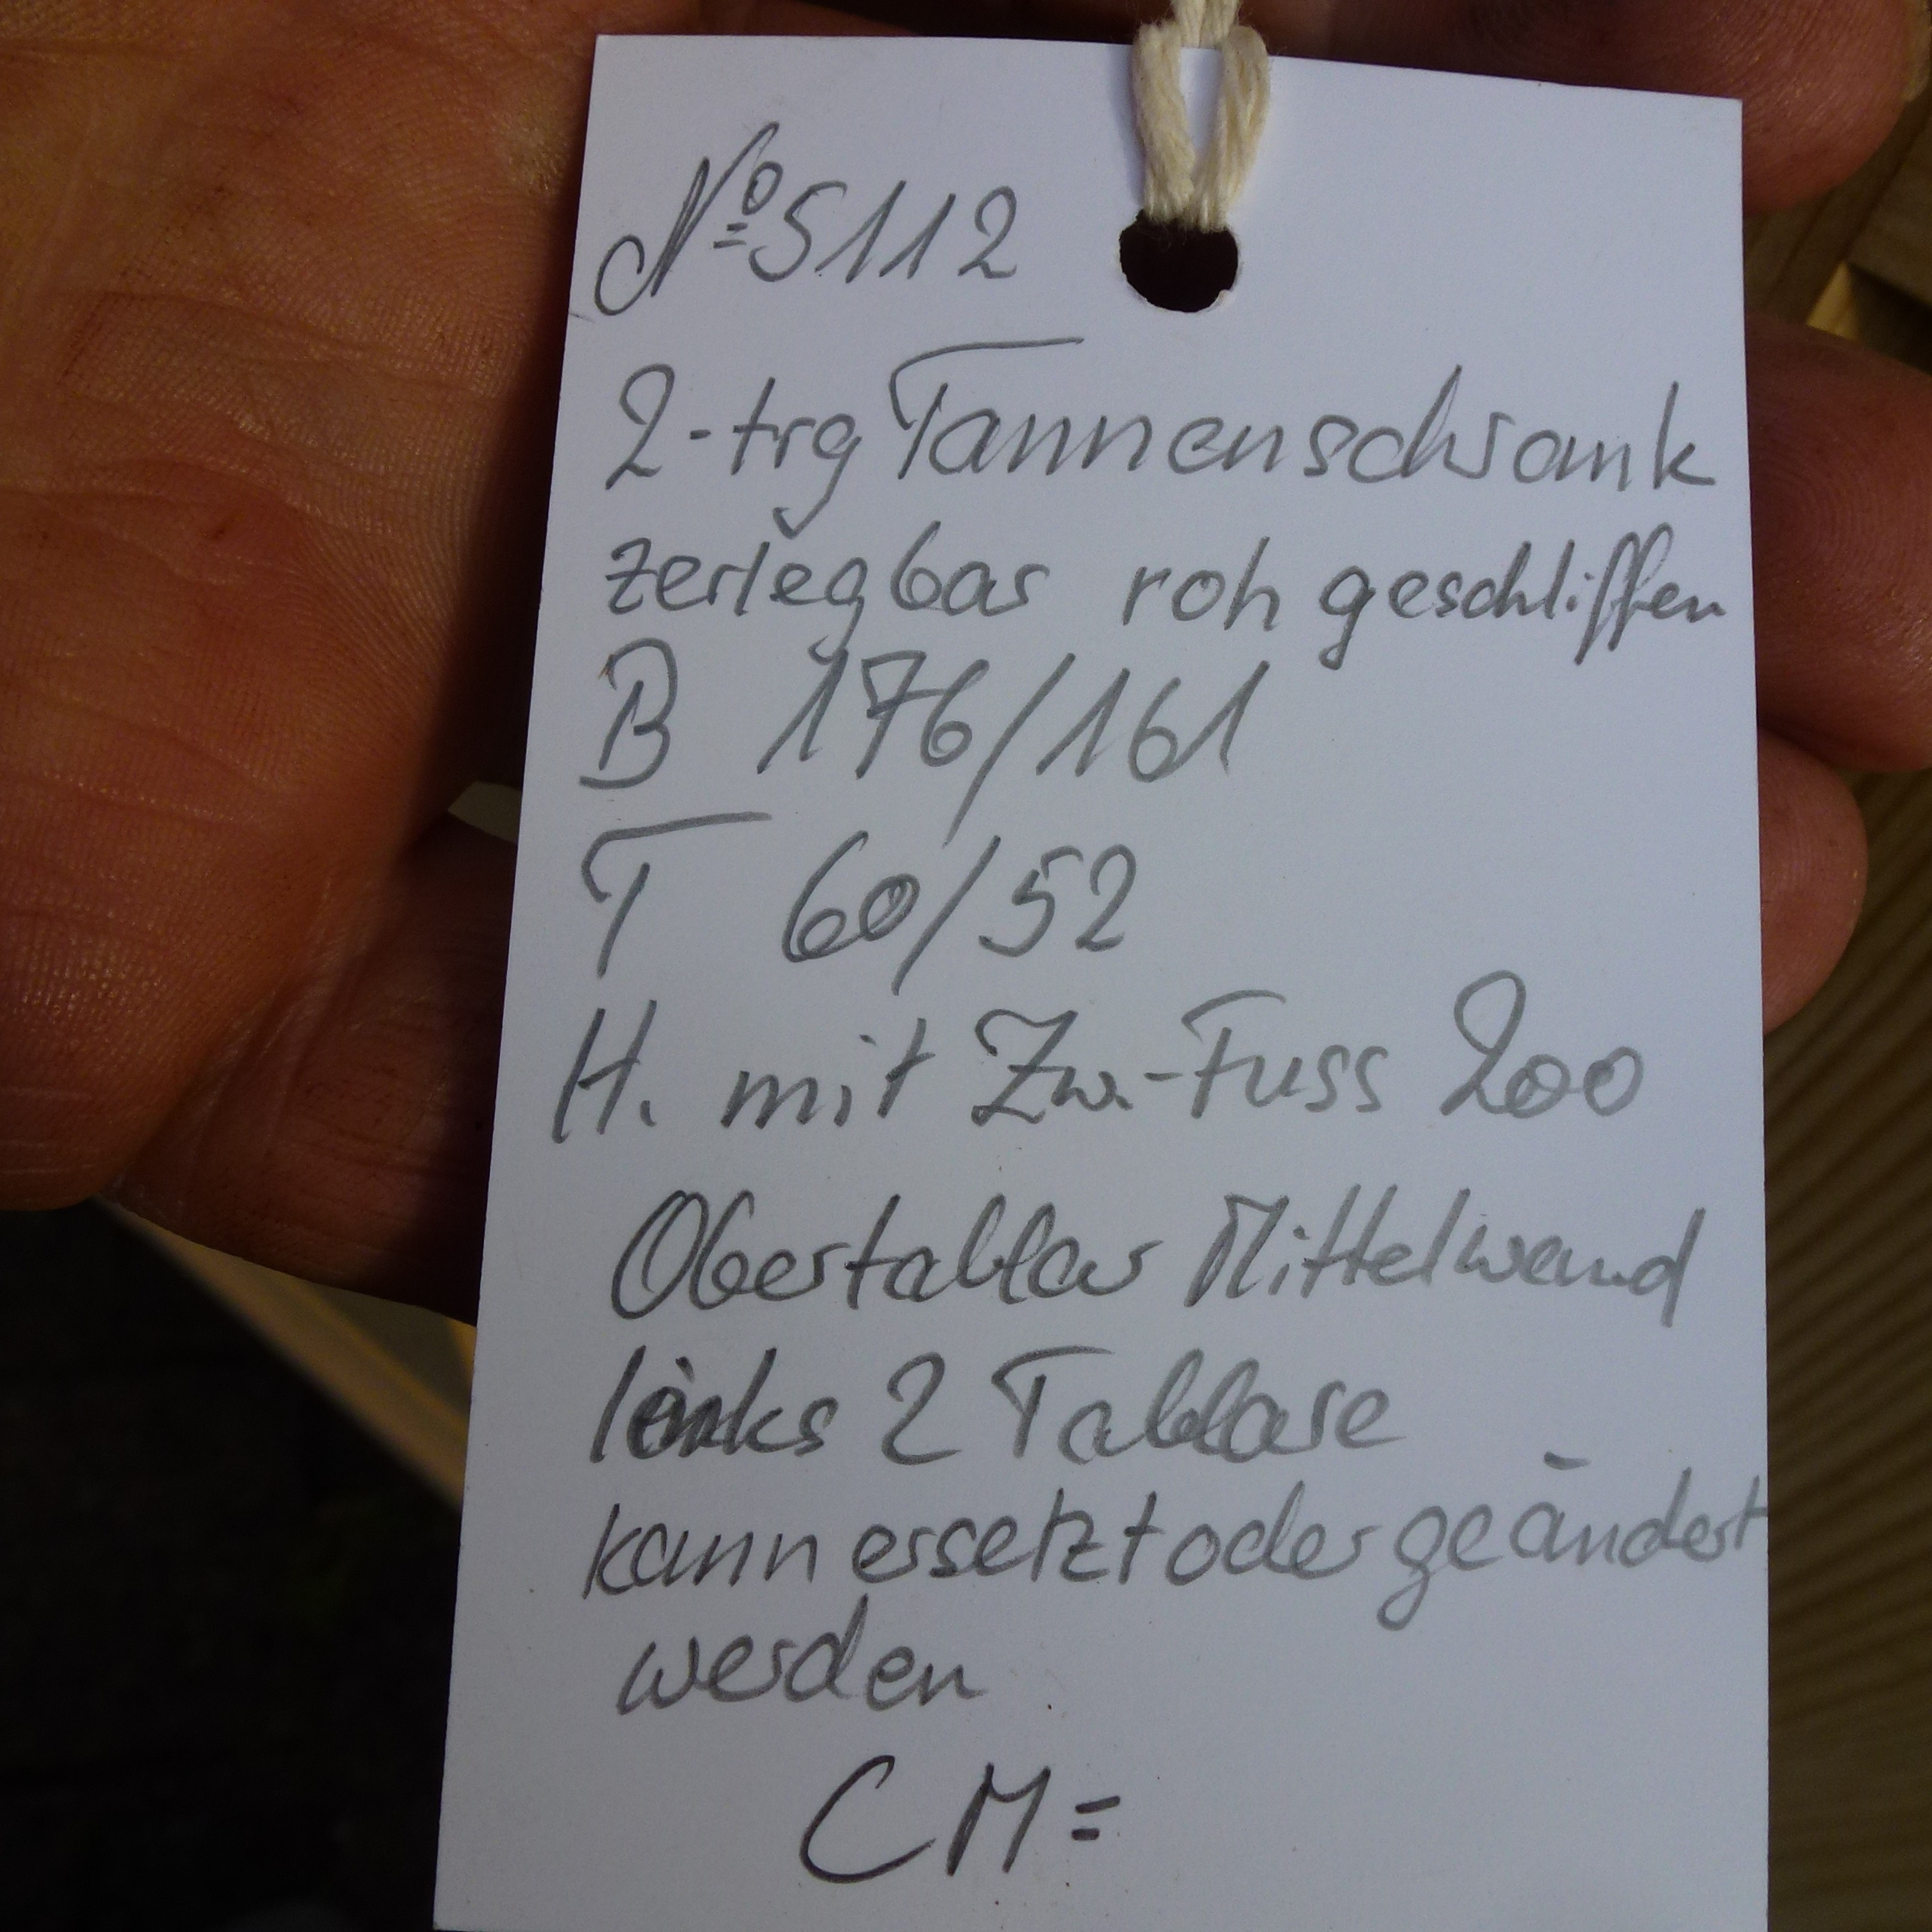 Nº 5112
2-trg Tannenschrank
zerlegbar roh geschliffen
B 176/161
T 60/52
H. mit Zw.-Fuss 200
Obertablar Mittelwand
links 2 Tablare
kann ersetzt oder geändert
werden
CM=